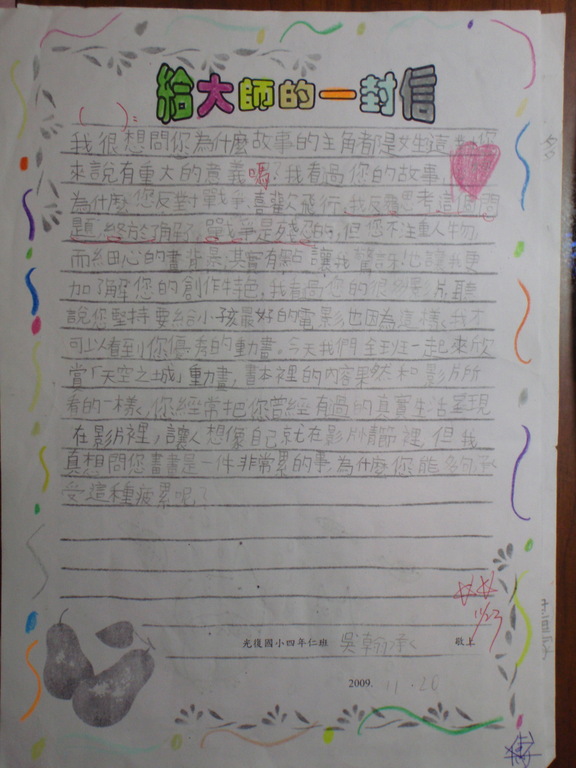 給大師的一封信
( ):
我很想問你為什麼故事的主角都是女生這對您
來說有重大的意義嗎?我看過您的故事,
為什麼您反對戰爭,喜歡飛行,我反覆思考這個問
題,終於了解了,戰爭是殘忍的,但您不注重人物,
而細心的畫背景,其實有點讓我驚訝!也讓我更
加了解您的創作特色,我看過您的很多影片聽
說您堅持要給小孩最好的電影也因為這樣,我才
可以看到你優秀的動畫。今天我們全班一起來欣
賞「天空之城」動畫,書本裡的內容果然和影片所
看的一樣,您經常把您曾經有過的真實生活呈現
在影片裡,讓人想像自己就在影片情節裡,但我
真想問您畫畫是一件非常累的事,為什麼您能夠承
受這種疲累呢?
光復國小四年仁班 吳翰承 敬上
11/27
2009. 11. 26